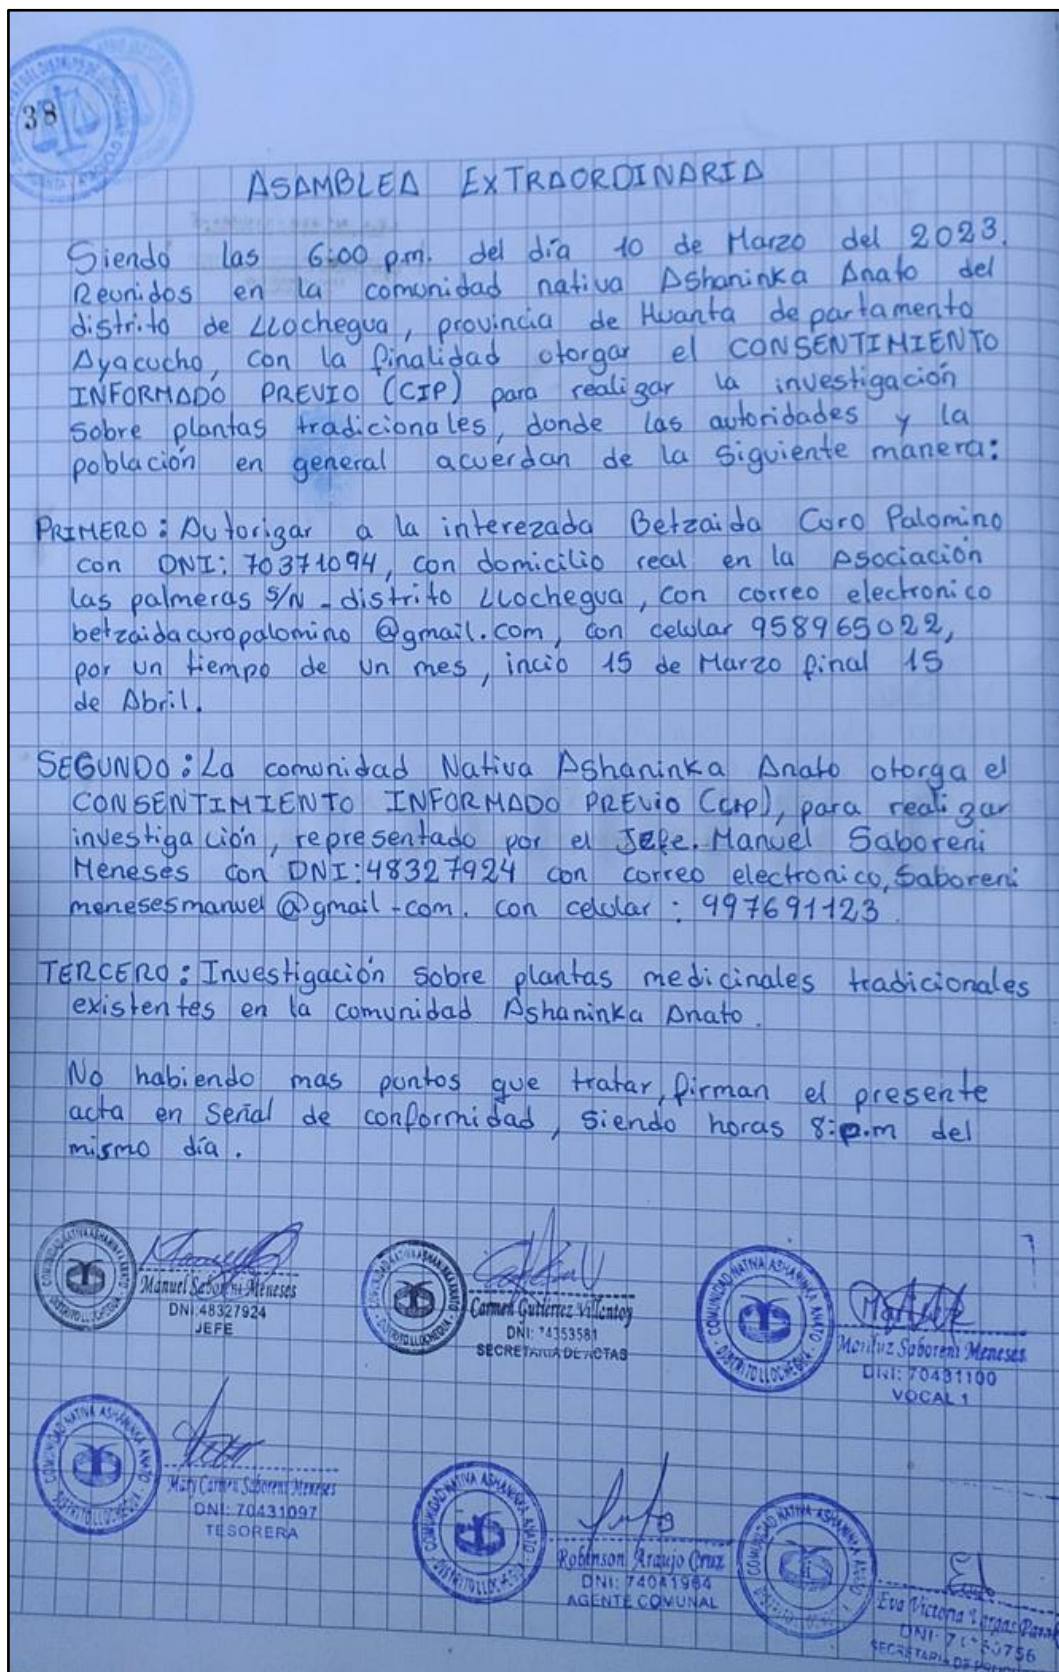 38
ASAMBLEA EXTRAORDINARIA
Siendo las 6:00 p.m. del día 10 de Marzo del 2023.
Reunidos en la comunidad nativa Ashaninka Anato del
distrito de LLochegua, provincia de Huanta departamento
Ayacucho, con la finalidad otorgar el CONSENTIMIENTO
INFORMADO PREVIO (CIP) para realizar la investigación
sobre plantas tradicionales, donde las autoridades y la
población en general acuerdan de la siguiente manera:
PRIMERO: Autorizar a la interezada Betzaida Curo Palomino
con DNI: 70371094, con domicilio real en la Asociación
las palmeras S/N - distrito LLochegua, con correo electronico
betzaidacuropalomino @gmail.com, con celular 958965022,
por un tiempo de un mes, incio 15 de Marzo final 15
de Abril.
SEGUNDO: La comunidad Nativa Ashaninka Anato otorga el
CONSENTIMIENTO INFORMADO PREVIO (CIP), para realizar
investigación, representado por el Jefe. Manuel Saboreni
Meneses con DNI: 48327924 con correo electronico, Saboreni
menesesmanuel @gmail-com. con celular: 997691123.
TERCERO: Investigación sobre plantas medicinales tradicionales
existentes en la comunidad Ashaninka Anato.
No habiendo mas puntos que tratar, firman el presente
acta en Señal de conformidad, siendo horas 8:p.m del
mismo día.
COMUNIDAD NATIVA ASHANINKA ANATO
DISTRITO LLOCHEGUA
Manuel Saboreni Meneses
DNI:48327924
JEFE
COMUNIDAD NATIVA ASHANINKA ANATO
DISTRITO LLOCHEGUA
Carmen Gutierrez Villantoy
DNI: 74353581
SECRETARIA DE ACTAS
COMUNIDAD NATIVA ASHANINKA ANATO
DISTRITO LLOCHEGUA
Meneses
DNI: 70431100
VOCAL 1
COMUNIDAD NATIVA ASHANINKA ANATO
DISTRITO LLOCHEGUA
Mary Carmen Saboreni Meneses
DNI: 70431097
TESORERA
COMUNIDAD NATIVA ASHANINKA ANATO
DISTRITO LLOCHEGUA
Robinson Araujo Cruz
DNI: 74041964
AGENTE COMUNAL
COMUNIDAD NATIVA ASHANINKA ANATO
Eva Victoria Vargas
DNI:
SECRETARIA DE